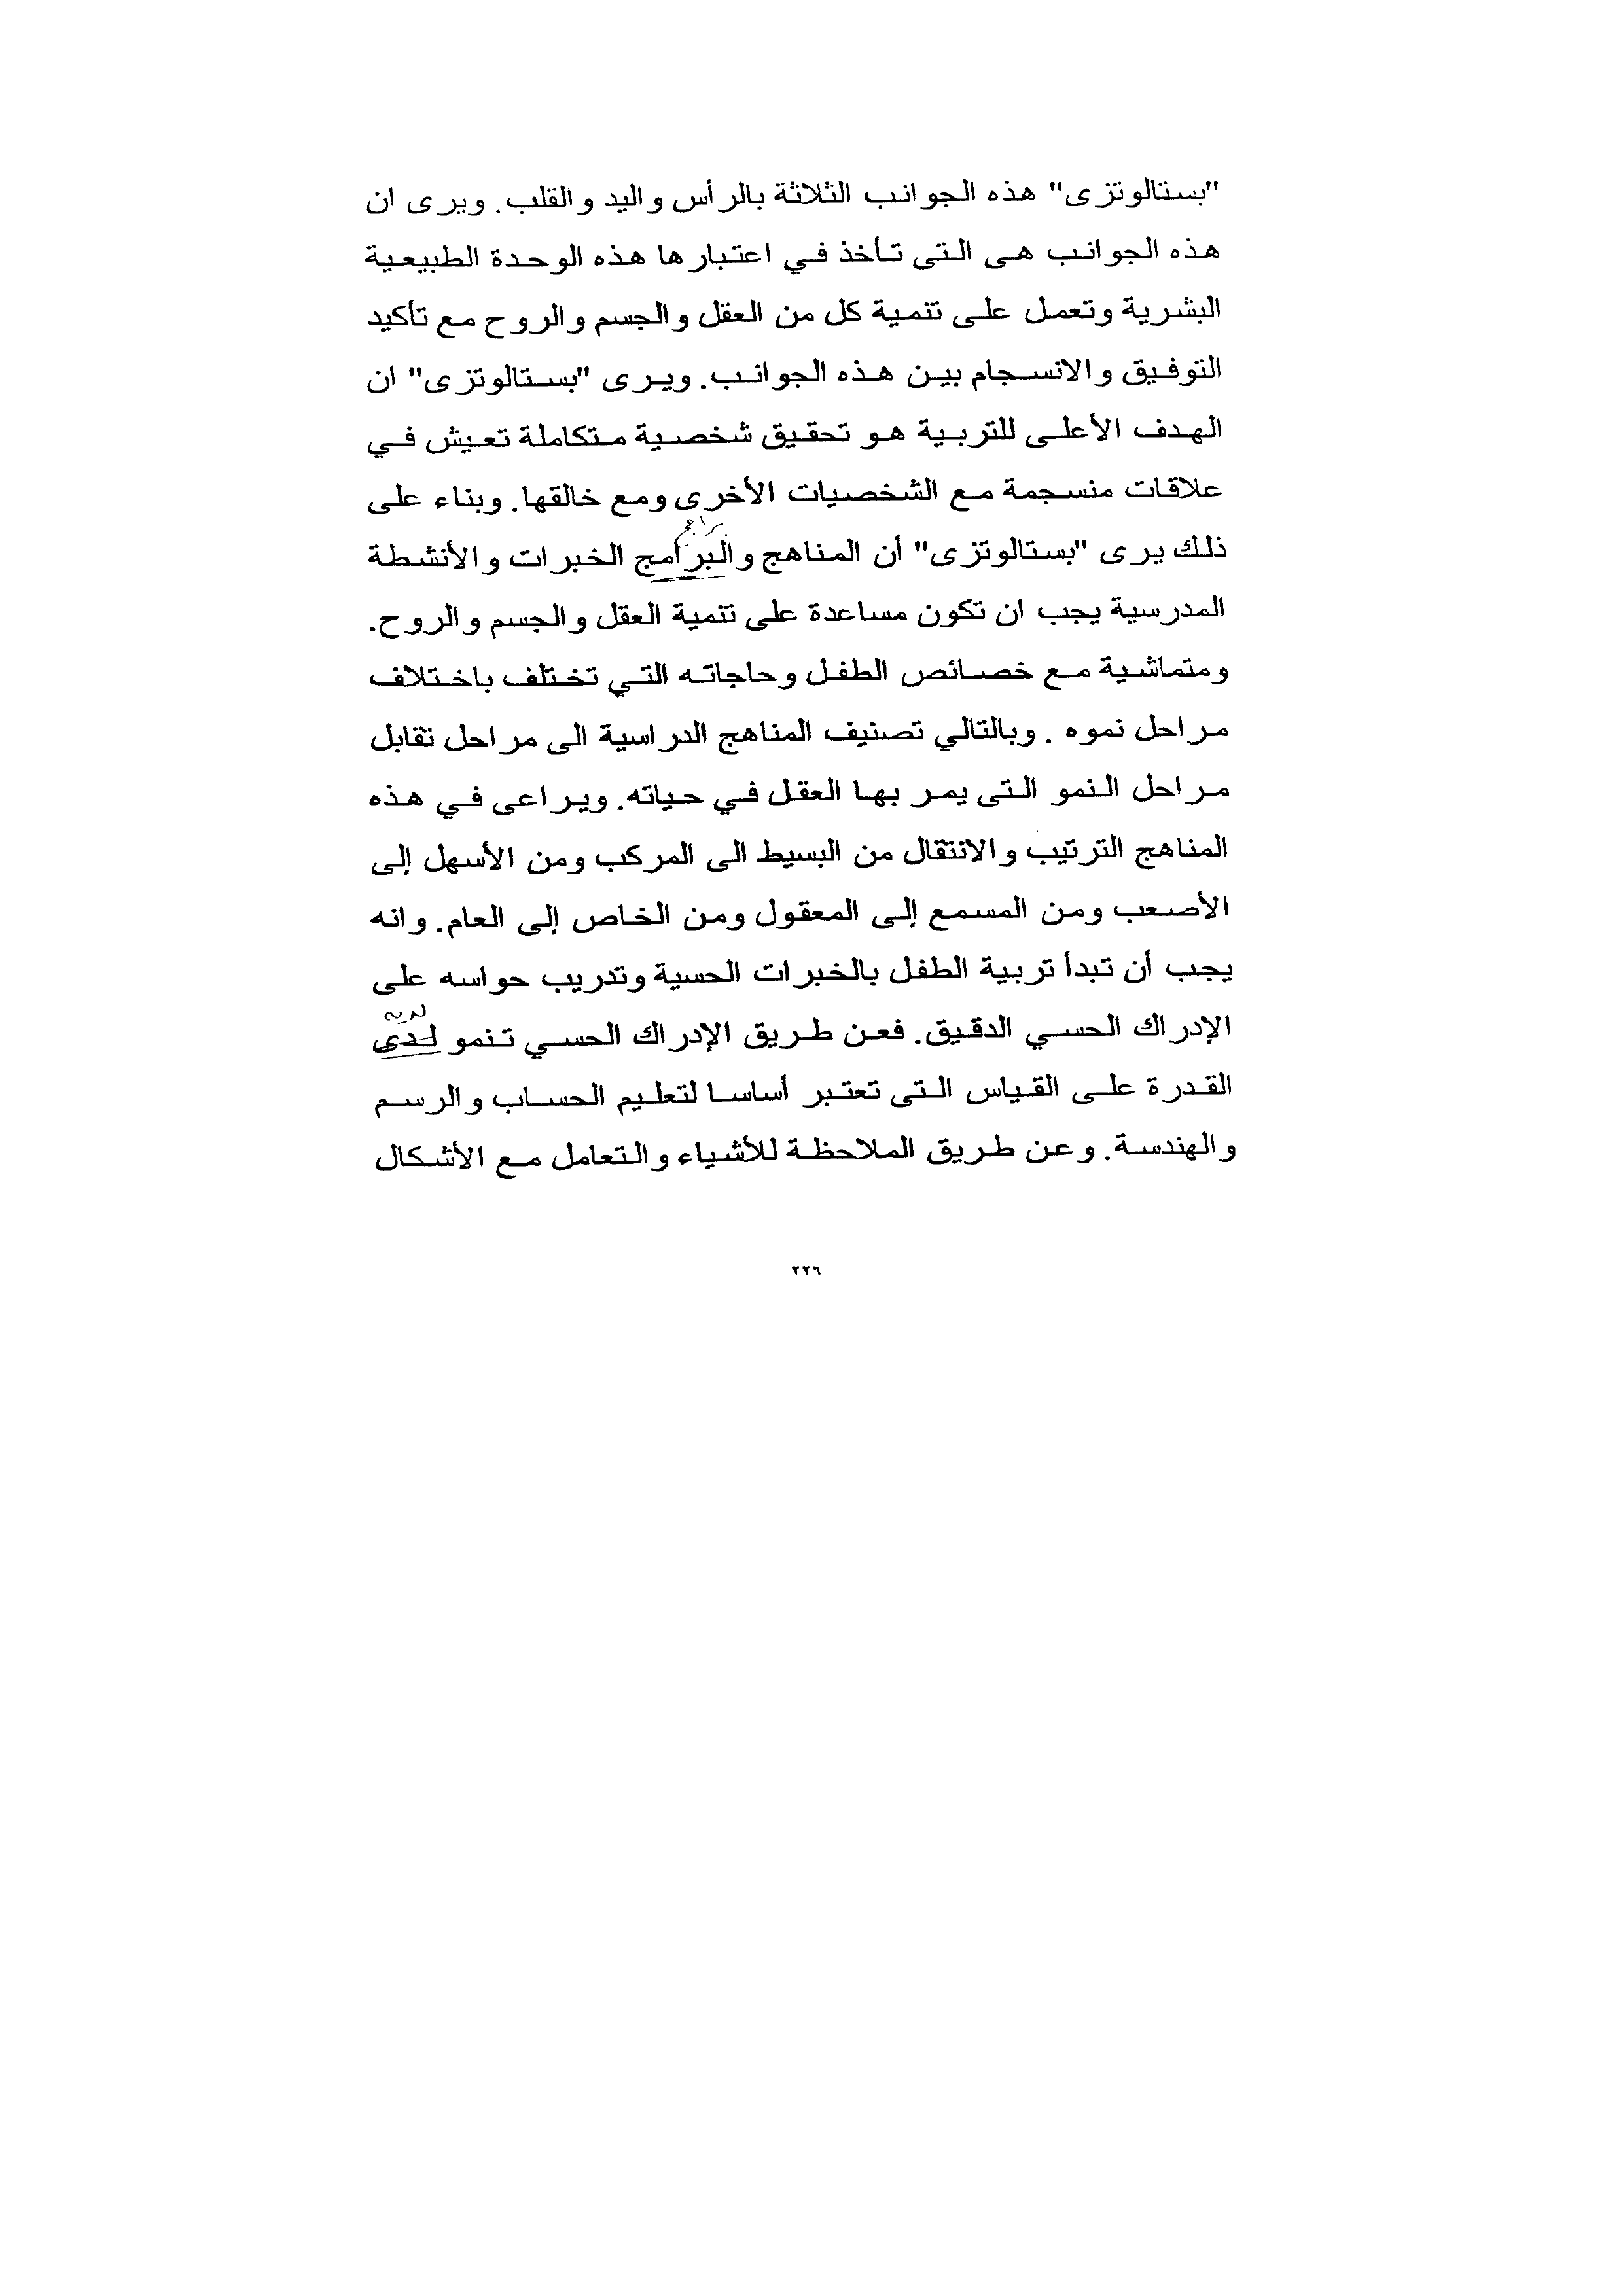 "بستالوتزى" هذه الجوانب الثلاثة بالرأس واليد والقلب. ويرى ان
هذه الجوانب هى التى تأخذ في اعتبارها هذه الوحدة الطبيعية
البشرية وتعمل على تنمية كل من العقل والجسم والروح مع تأكيد
التوفيق والانسجام بين هذه الجوانب. ويرى "بستالوتزى" ان
الهدف الأعلى للتربية هو تحقيق شخصية متكاملة تعيش في
علاقات منسجمة مع الشخصيات الأخرى ومع خالقها. وبناء على
برامج
ذلك يرى "بستالوتزى" أن المناهج والبرامج الخبرات والأنشطة
المدرسية يجب ان تكون مساعدة على تنمية العقل والجسم والروح.
ومتماشية مع خصائص الطفل وحاجاته التي تختلف باختلاف
مراحل نموه . وبالتالي تصنيف المناهج الدراسية الى مراحل تقابل
مراحل النمو التى يمر بها العقل في حياته. ويراعى في هذه
المناهج الترتيب والانتقال من البسيط الى المركب ومن الأسهل إلى
الأصعب ومن المسمع إلى المعقول ومن الخاص إلى العام. وانه
يجب أن تبدأ تربية الطفل بالخبرات الحسية وتدريب حواسه على
لديه
الإدراك الحسي الدقيق. فعن طريق الإدراك الحسي تنمو لدى
القدرة على القياس التى تعتبر أساسا لتعليم الحساب والرسم
والهندسة. وعن طريق الملاحظة للأشياء والتعامل مع الأشكال
٢٢٦